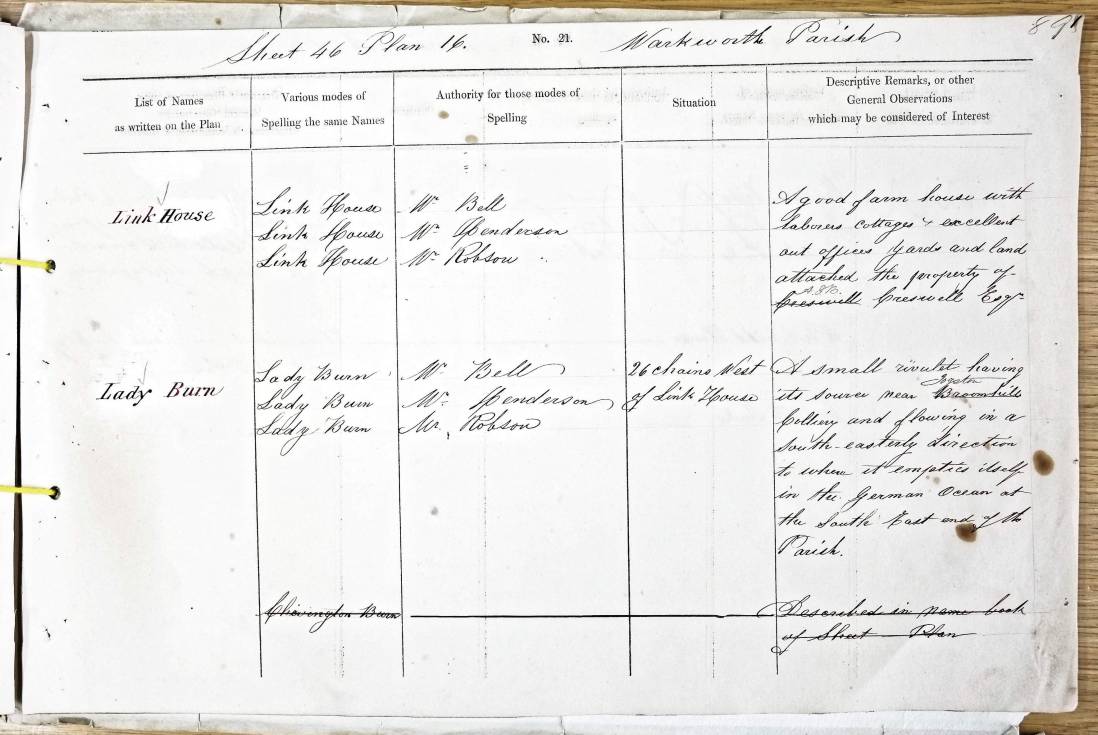 89
Sheet 46 Plan 16. No. 21. Warkworth Parish
List of Names
as written on the Plan
Various modes of
Spelling the same Names
Authority for those modes of
Spelling
Situation
Descriptive Remarks, or other
General Observations
which may be considered of Interest
Link House
Link House
Link House
Link House
Mr Bell
Mr Henderson
Mr Robson
A good farm house with
laborers cottages & excellent
out offices yards and land
attached the property of
A.J.B.
Creswell Creswell Esqr
Lady Burn
Lady Burn
Lady Burn
Lady Burn
Mr Bell
Mr Henderson
Mr Robson
26 chains West
of Link House
A small rivulet having
Togston
its source near Broomhill
Colliery and flowing in a
South-easterly direction
to where it empties itself
in the German Ocean at
the South East end of the
Parish.
Chevington Burn
Described in name book
of Sheet Plan